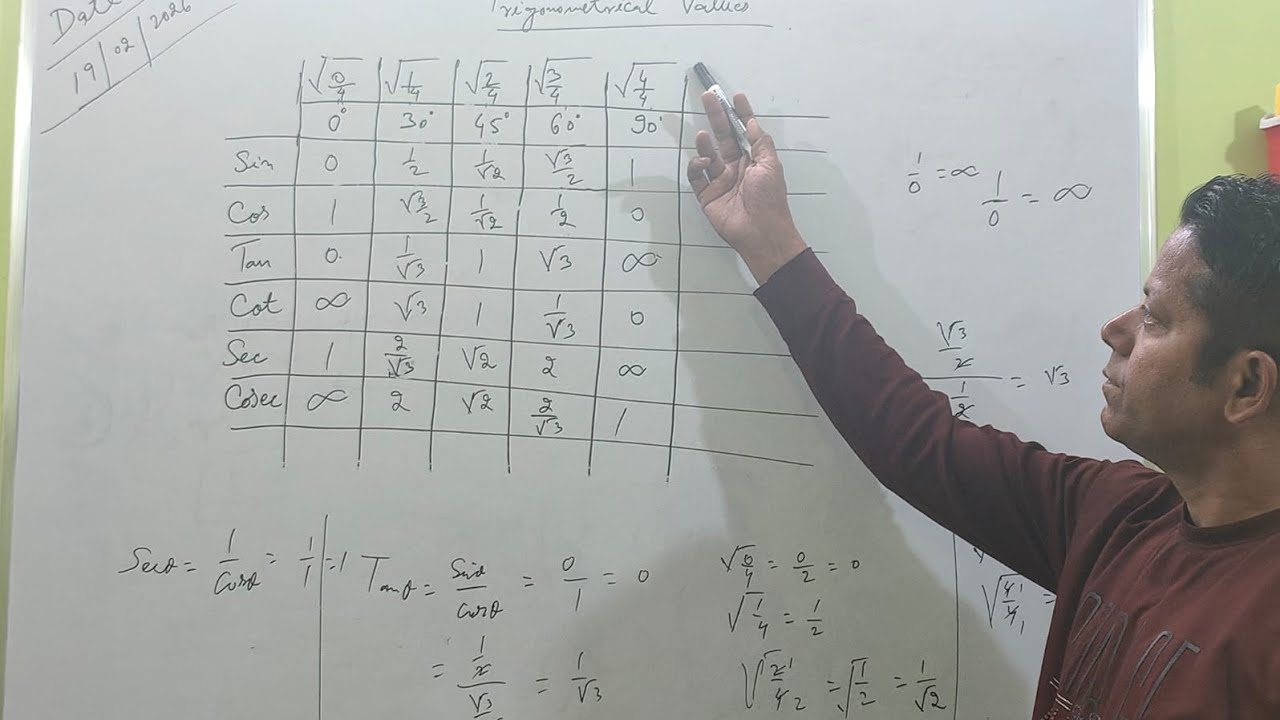 Date
19/02/2026
Trigonometrical Values
√0/4 √1/4 √2/4 √3/4 √4/4
0° 30° 45° 60° 90°
Sin 0 1/2 1/√2 √3/2 1
Cos 1 √3/2 1/√2 1/2 0
Tan 0 1/√3 1 √3 ∞
Cot ∞ √3 1 1/√3 0
Sec 1 2/√3 √2 2 ∞
Cosec ∞ 2 √2 2/√3 1
1/0 = ∞
1/0 = ∞
√3/2 / 1/2 = √3
Secθ = 1/cosθ = 1/1 = 1
Tanθ = Sinθ/cosθ = 0/1 = 0
= 1/2 / √3 = 1/√3
√0/4 = 0/2 = 0
√1/4 = 1/2
√2 1/4 2 = √1/2 = 1/√2
√4 1/4 1 =